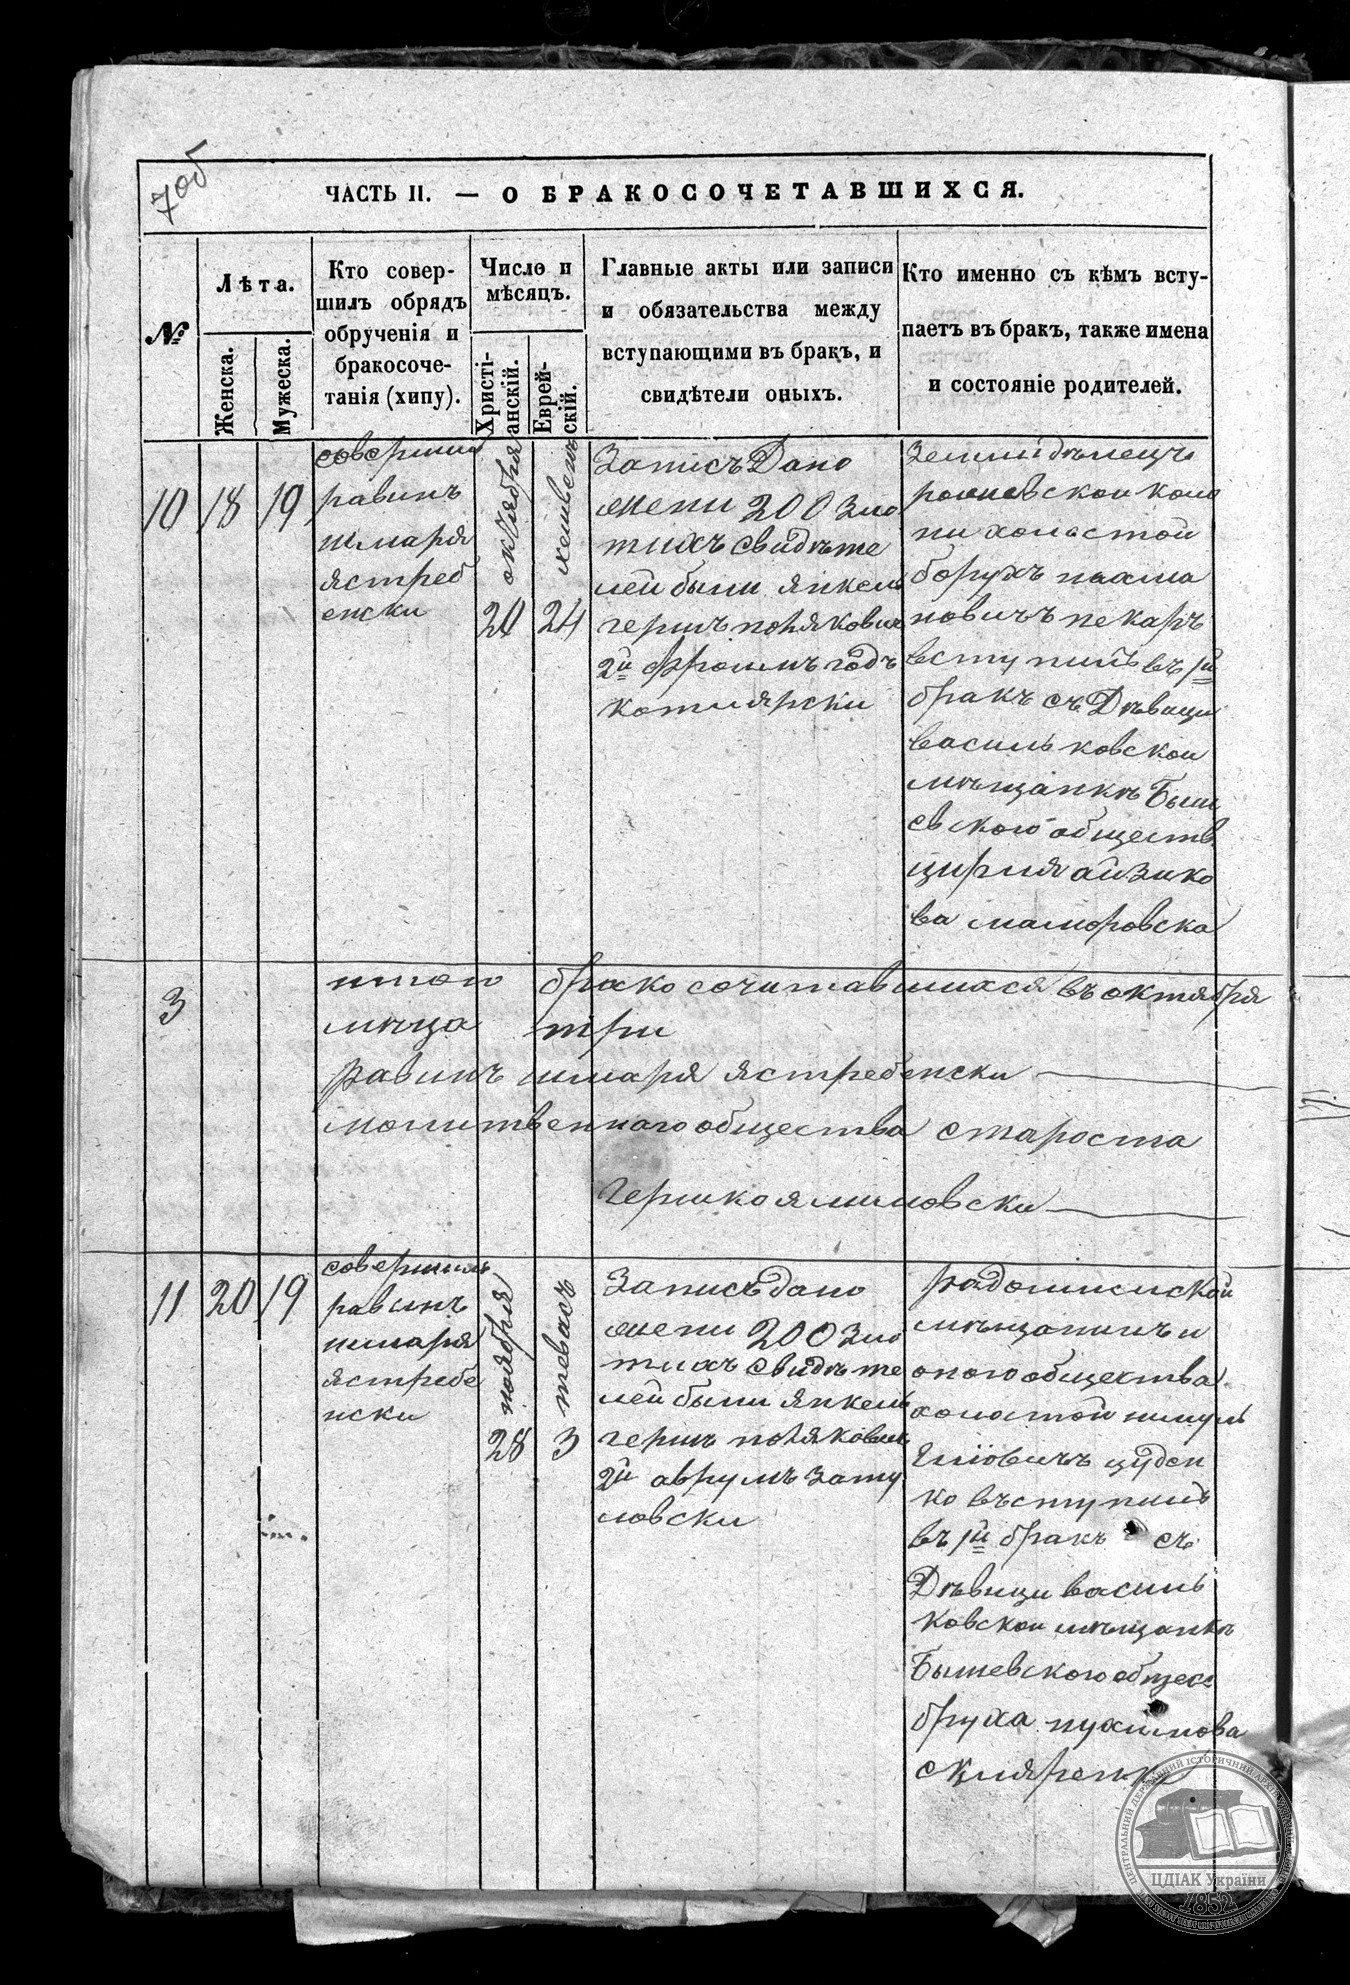 7об
ЧАСТЬ II. — О БРАКОСОЧЕТАВШИХСЯ.
№
Лѣта.
Женска.
Мужеска.
Кто совер-
шилъ обрядъ
обрученія и
бракосоче-
танія (хипу).
Число и
мѣсяцъ.
Христі-
анскій.
Еврей-
скій.
Главные акты или записи
и обязательства между
вступающими въ бракъ, и
свидѣтели оныхъ.
Кто именно съ кѣмъ всту-
паетъ въ бракъ, также имена
и состояніе родителей.
10
18
19
совершил
равинъ
шмаря
ястреб
енски
октября
20
хешвенъ
24
Записъ Дано
жени 200 зло
тихъ свидѣте
лей были янкель
гершъ полякович
2й фроимъ годъ
котлярски
Земмидѣлецъ
коло
ни холостой
борухъ нахма
новичъ пекаръ
вступилъ въ 1й
бракъ съ Дѣваци
васильковской
мѣщанкѣ Быш
евского обществ
цирля айзико
ва маморовска
3
итого бракосочитавшихся въ октября
мѣца три
равинъ шмаря ястребенски
молитвенного общества староста
гершко ялиновски
11
20
19
совершилъ
равинъ
шмаря
ястребе
нски
ноября
28
тевасъ
3
Записъ дано
жени 200 зло
тихъ свидѣте
лей были янкель
гершъ полякович
2й аврумъ зату
ловски
радомислской
мѣщанинъ и
оного общества
холостой шмуль
Еллiовичъ цуден
ко въступилъ
въ 1й бракъ съ
Дѣвици василь
ковской мѣщанкѣ
Бышевского общес
бруха нухимова
скляренк
ЦЕНТРАЛЬНИЙ ДЕРЖАВНИЙ ІСТОРИЧНИЙ АРХІВ
ЦДІАК України
1852